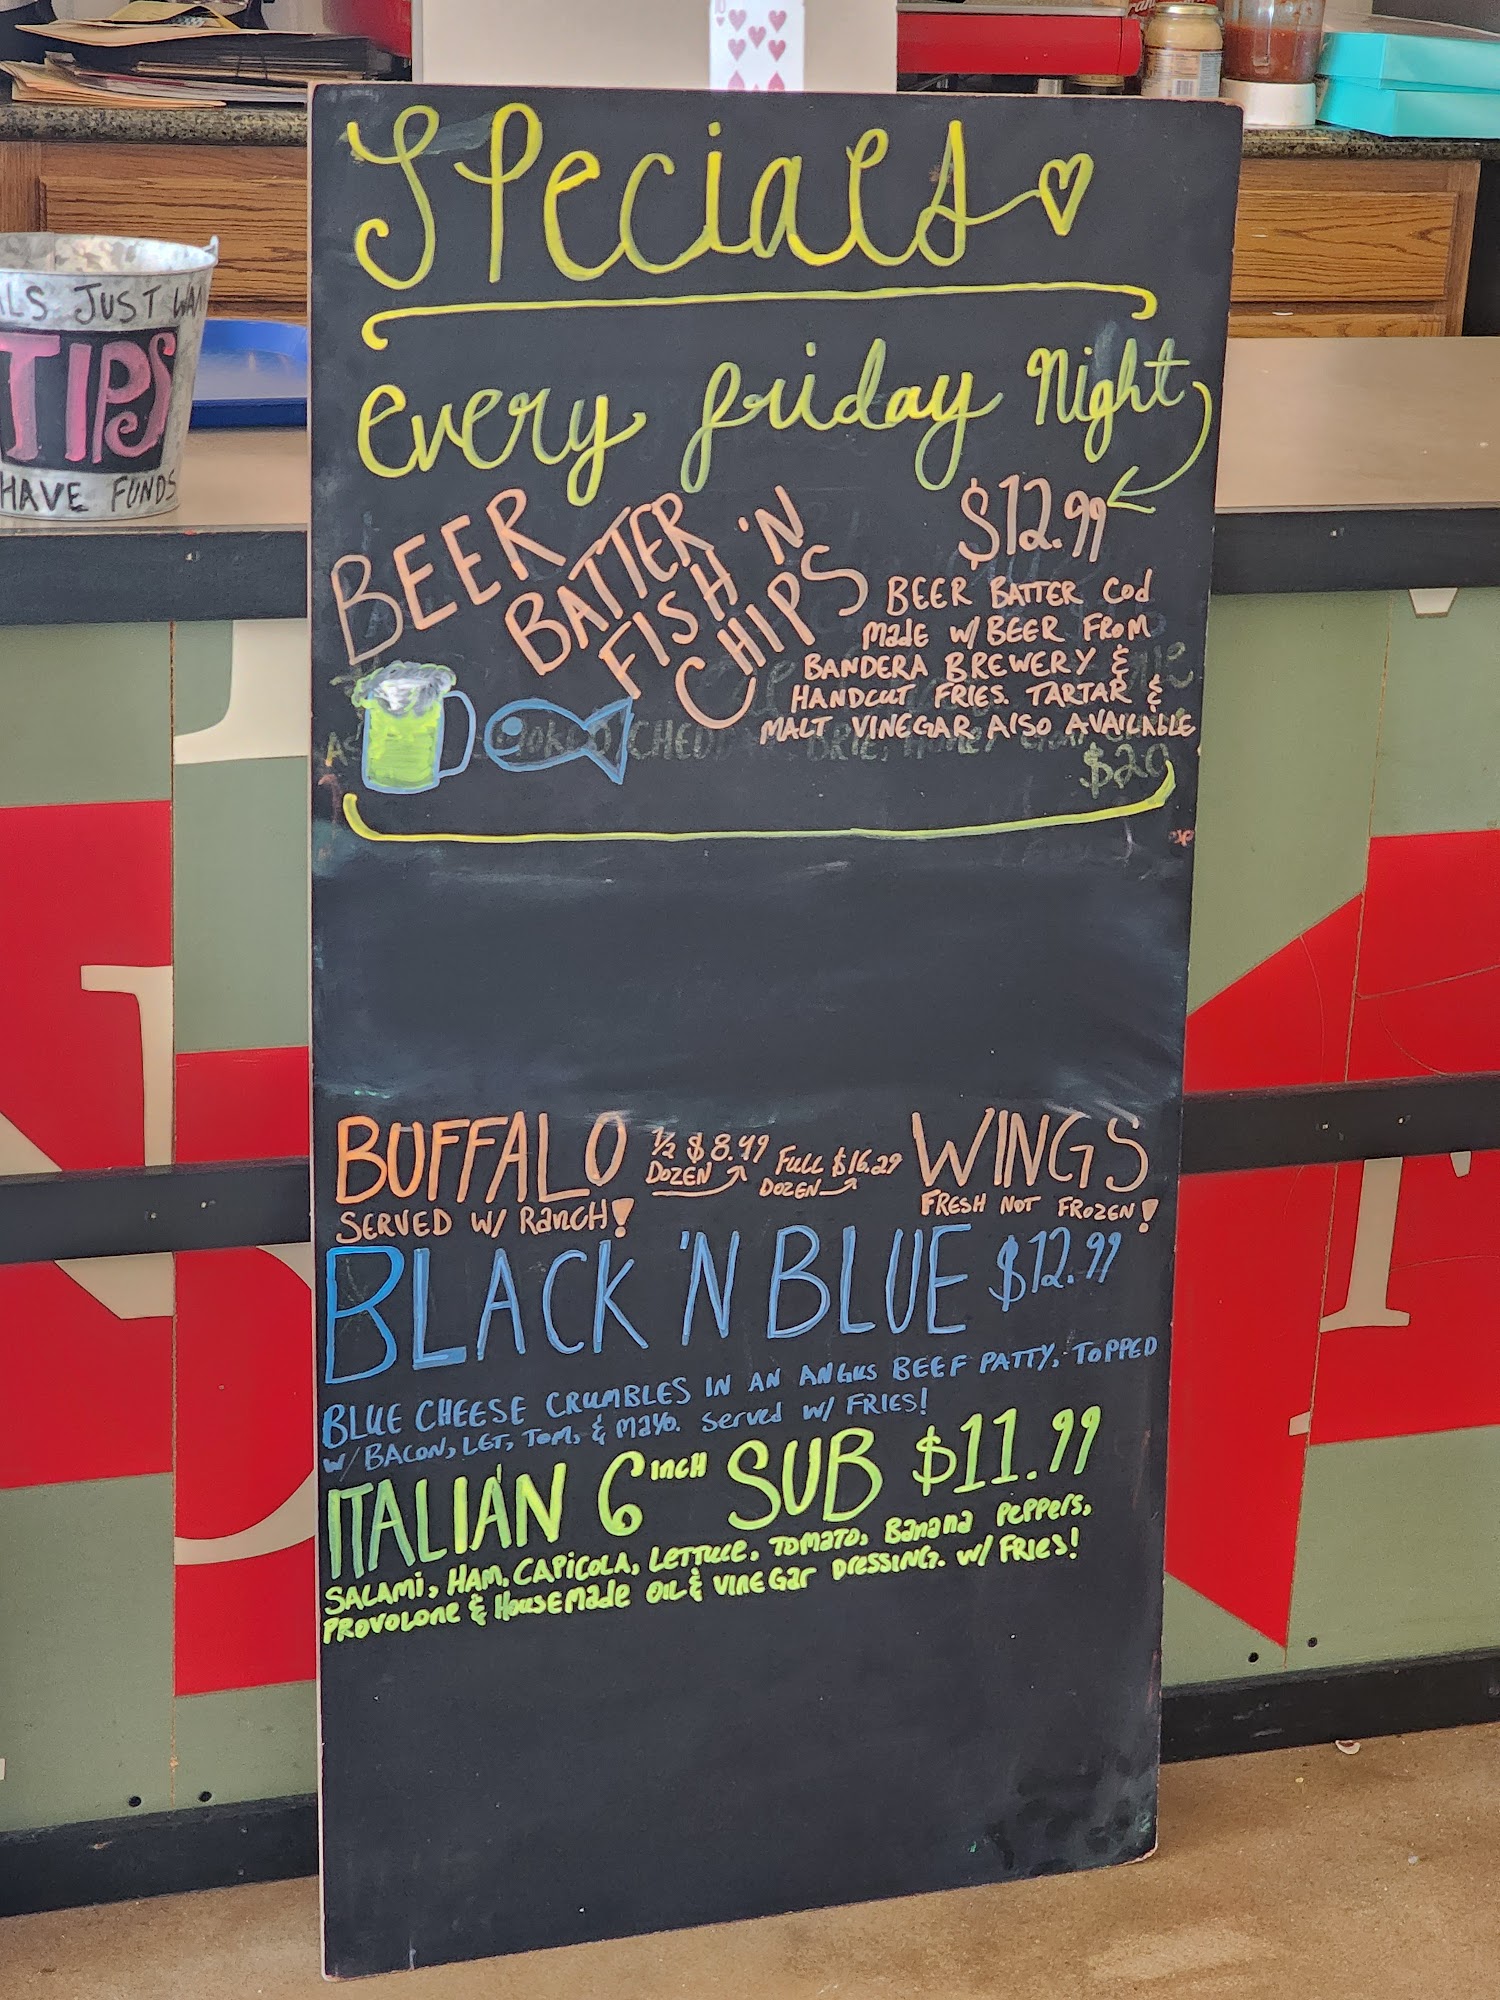 Specials
every friday Night
BEER
BATTER
FISH 'N
CHIPS
$12.99
BEER BATTER Cod
Made W/ BEER FROM
BANDERA BREWERY &
HANDCUT FRIES. TARTAR &
MALT VINEGAR AlSO AVAILABLE
$20
BUFFALO ½ DOZEN $8.49 FULL DOZEN $16.29 WINGS
SERVED W/ RANCH! FRESH NOT FROZEN!
BLACK 'N BLUE $12.99
BLUE CHEESE CRUMBLES IN AN ANGUS BEEF PATTY, TOPPED
W/ BACON, LET, TOM, & MAYO. Served W/ FRIES!
ITALIAN 6 INCH SUB $11.99
SALAMI, HAM, CAPICOLA, LETTUCE, TOMATO, BANANA PEPPERS,
PROVOLONE & HOUSEMADE OIL & VINEGAR DRESSING. W/ FRIES!
JUST
TIPS
HAVE FUNDS
10